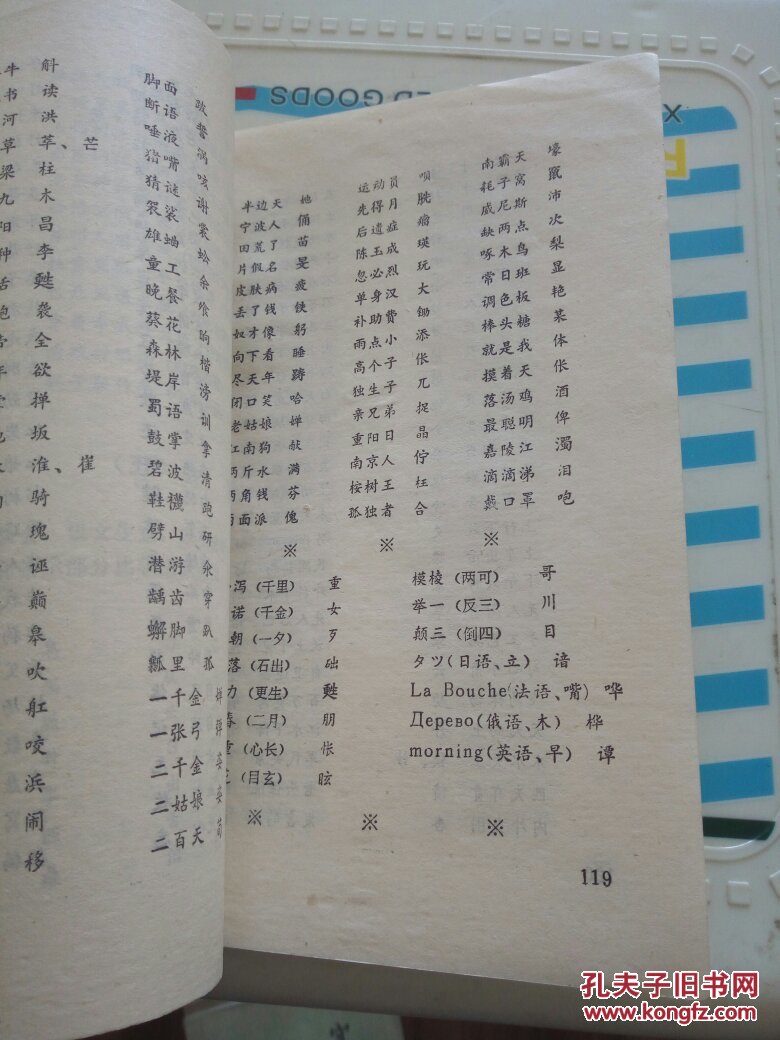 斛
读
洪
萃、芒
柱
木
昌
李
甦
袭
全
欲
掸
坂
淮、崔
骑
瑰
诓
巅
皋
吹
舡
咬
浜
闹
移
脚面 跛
断语 誓
唾液 涡
猪嘴 咳
猜谜 谢
袈裟 裳
雄蛐 蚣
童工
晚餐 飧
葵花 晌
森林 楷
堤岸 滂
蜀语 训
鼓掌 拿
碧波 清
鞋袜 跑
劈山 研
潜游 氽
龋齿 穿
螂脚 趴
瓢里 孤
一千金
一张弓
二千金
二姑娘
二百天
半边天 她
宁波人 俑
田荒了 苗
片假名 旻
皮肤病 疲
丢了钱
如才像 躬
向下看 睡
尽天年
闭口笑 哈
老姑娘 婵
江南狗 献
两斤水 满
两角钱 芬
两面派 傀
※
运动员 呗
先得月 胱
后遗症 瘤
陈玉成 瑛
忽必烈 玩
单身汉 大
补助费 锄
雨点小 添
高个子 伥
独生子 兀
亲兄弟 捉
重阳日 晶
南京人 佇
桉树王 枉
孤独者 合
※
南霸天 壕
耗子窝 窜
威尼斯 沛
缺两点 次
啄木鸟 梨
常日班 显
调色板 艳
棒头糖 某
就是我 体
摸着天 伥
落汤鸡 酒
最聪明 俾
嘉陵江 濁
滴滴涕 泪
戴口罩 咆
※
泻(千里) 重
诺(千金) 女
朝(一夕) 歹
落(石出) 础
力(更生) 甦
春(二月) 朋
重(心长) 怅
(目玄) 眩
※
※
模棱(两可) 哥
举一(反三) 川
颠三(倒四) 目
タツ(日语、立) 谙
La Bouche(法语、嘴) 哗
Дерево(俄语、木) 桦
morning(英语、早) 谭
※
119
ED GOODS
孔夫子旧书网
www.kongfz.com